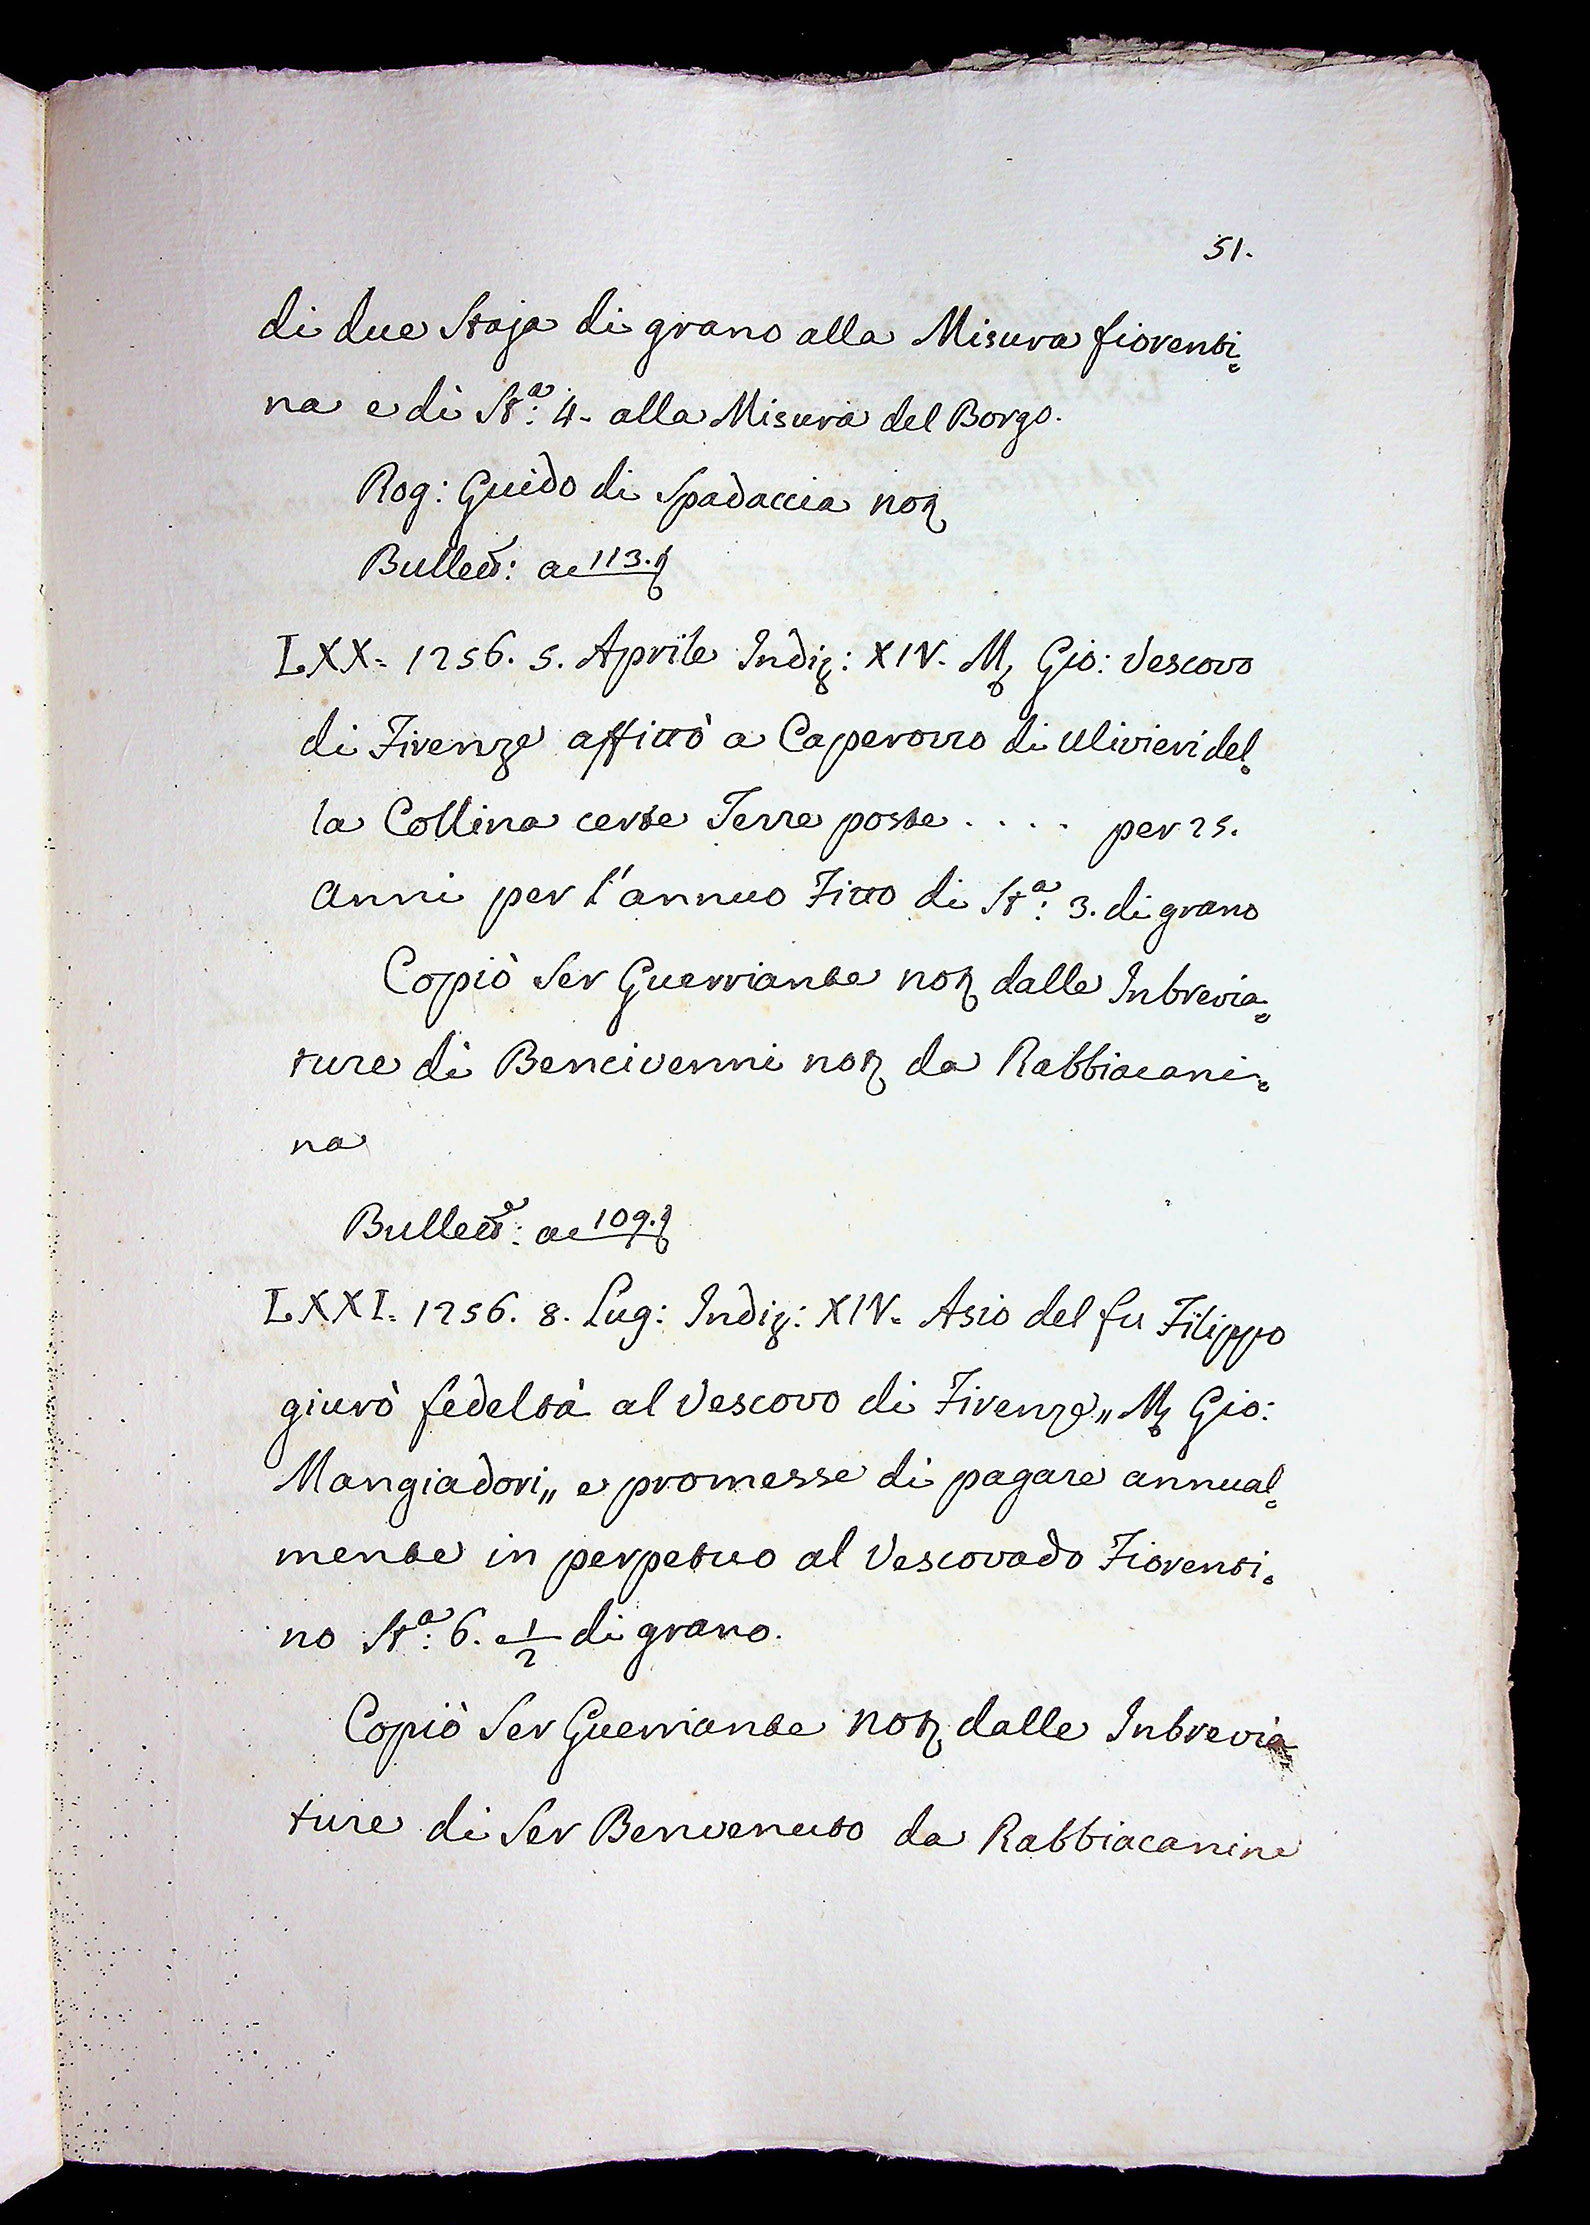 51.
di due Staja di grano alla Misura fiorenti=
na e di St.ª: 4. alla Misura del Borgo.
Rog: Guido di Spadaccia not
Bullett: ac 113.
LXX. 1256. 5. Aprile Indiz: XIV. M. Gio: Vescovo
di Firenze affittò a Caperozzo di Ulivieri del=
la Collina certe Terre poste . . . . per 25.
Anni per l'annuo Fitto di St.ª: 3. di grano
Copiò Ser Guerriante not dalle Inbrevia=
ture di Bencivenni not da Rabbiacani=
na
Bullett: ac 109.
LXXI. 1256. 8. Lug: Indiz: XIV. Asio del fu Filippo
giurò fedeltà al Vescovo di Firenze „ M. Gio:
Mangiadori „ e promesse di pagare annual=
mente in perpetuo al Vescovado Fiorenti=
no St.ª: 6. e 1/2 di grano.
Copiò Ser Guerriante not dalle Inbrevia
ture di Ser Benvenuto da Rabbiacanina